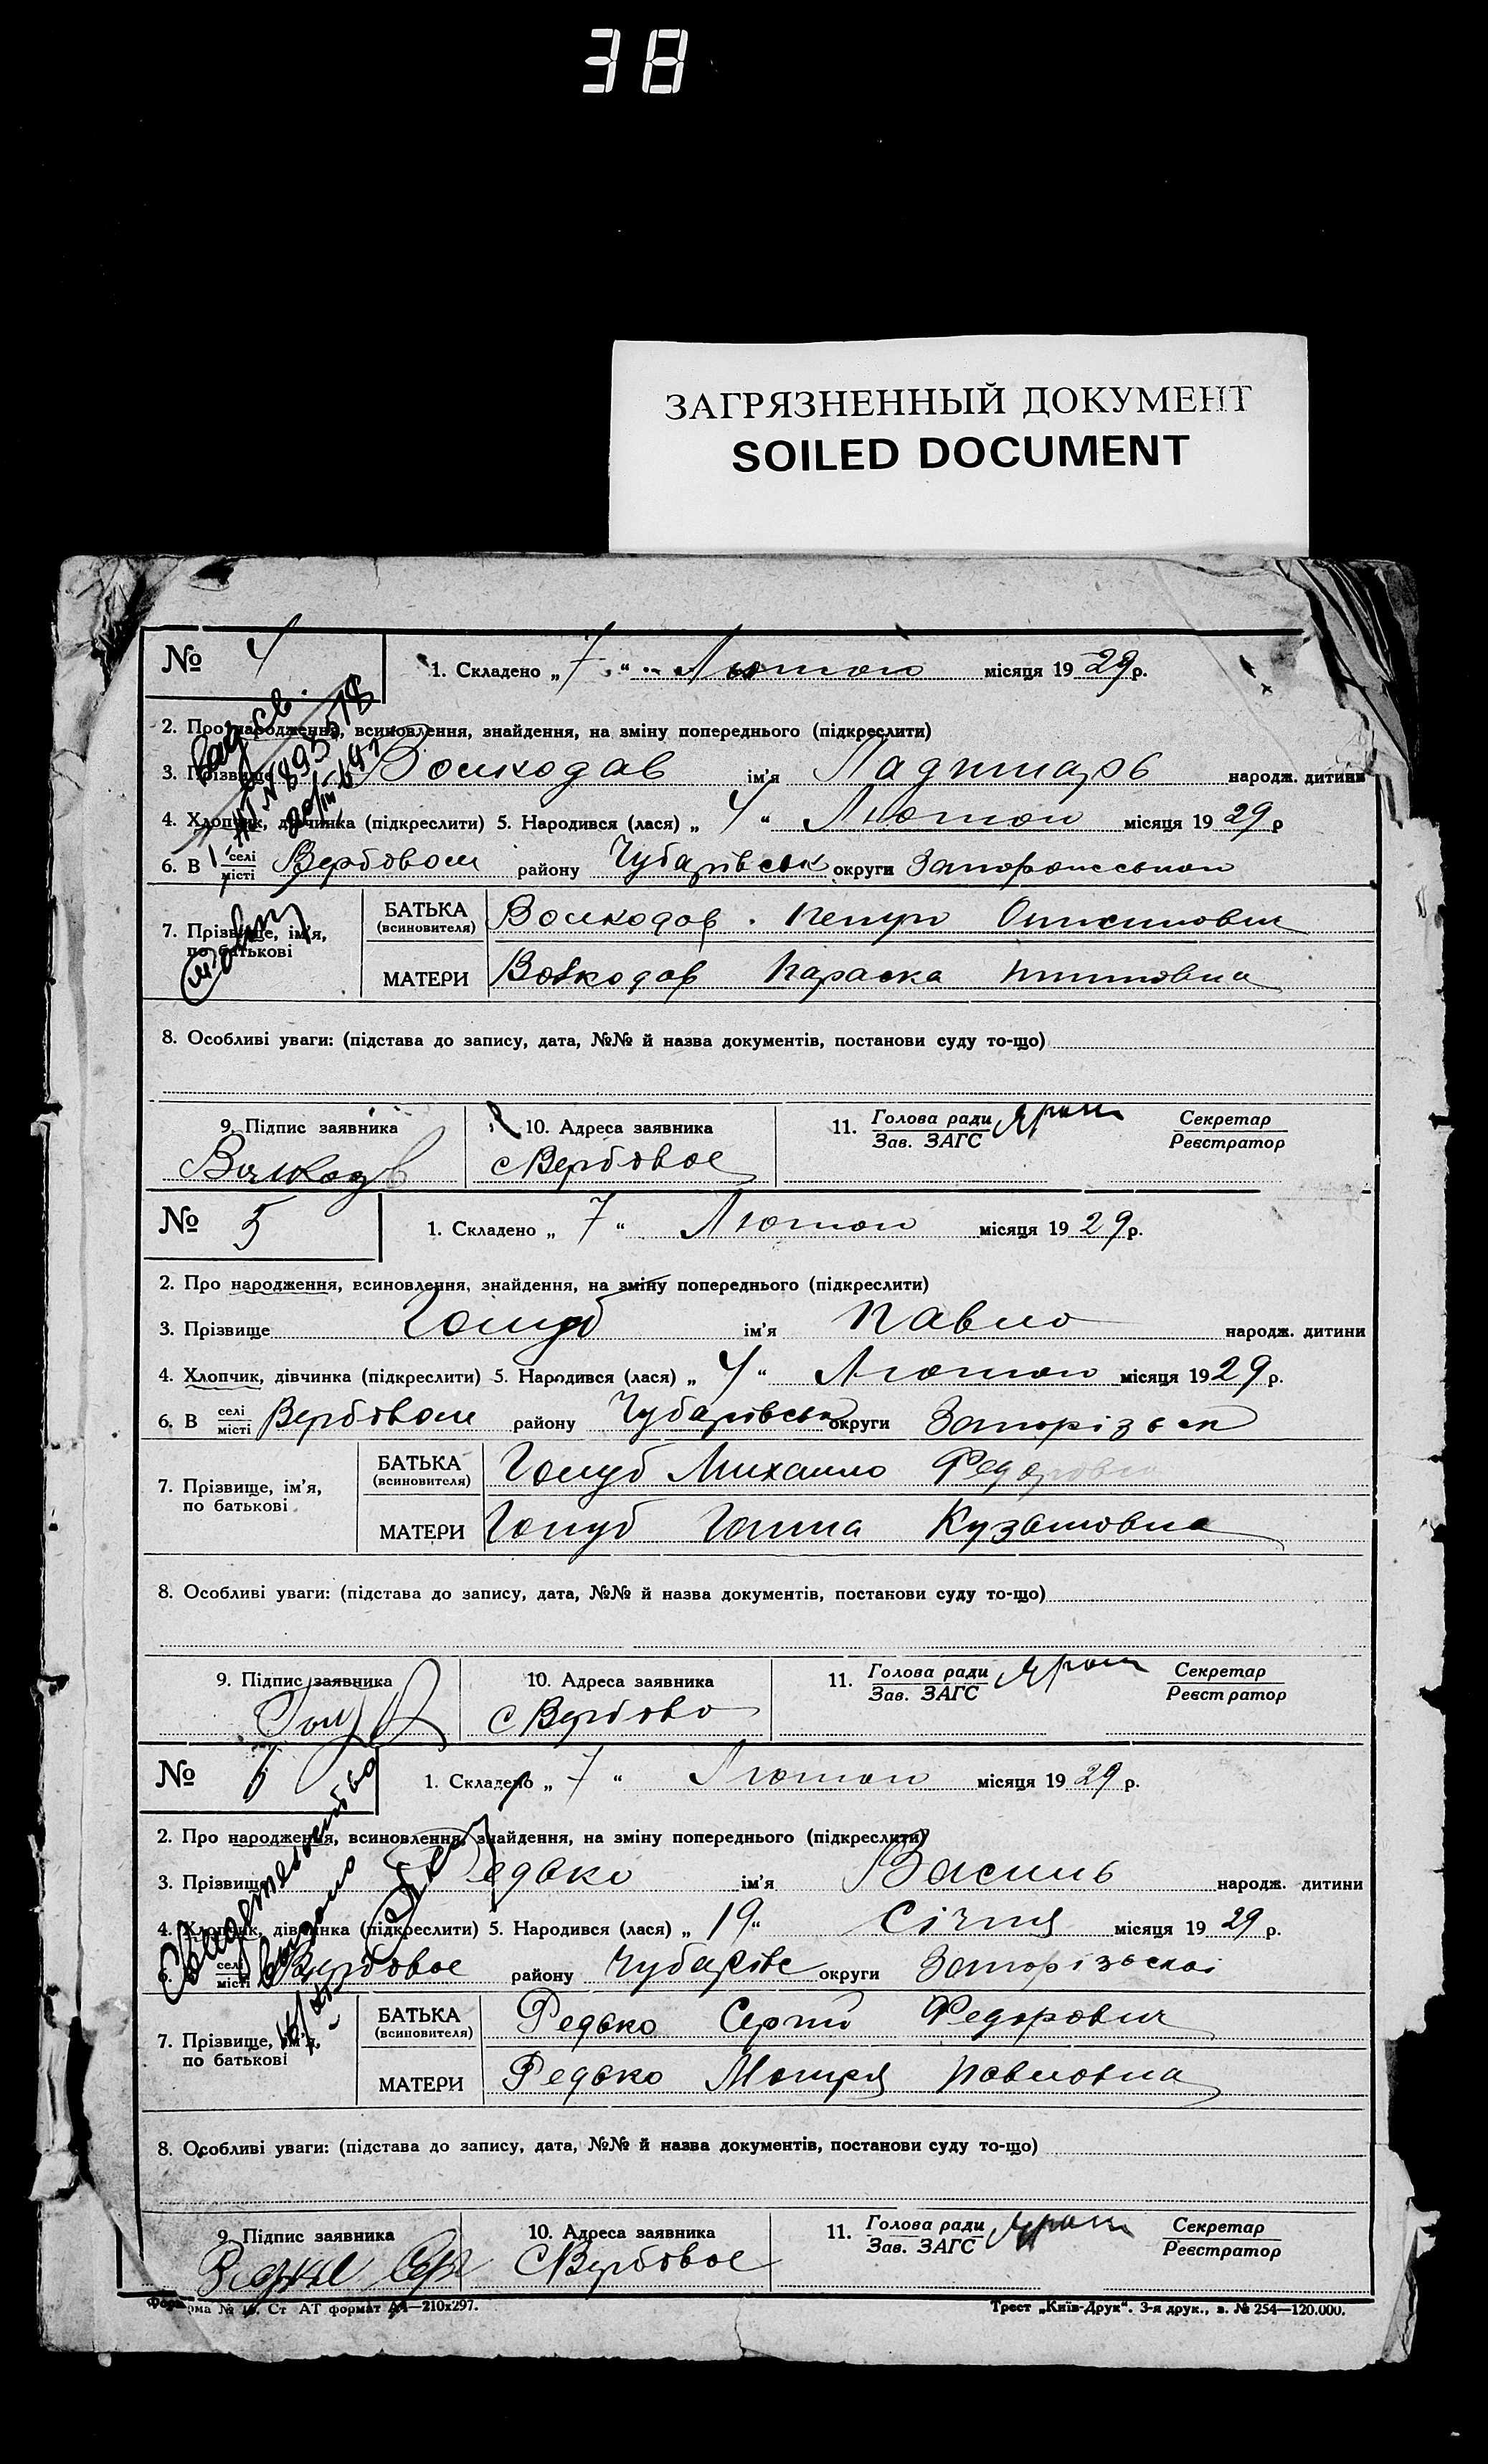 38
ЗАГРЯЗНЕННЫЙ ДОКУМЕНТ
SOILED DOCUMENT
№ 4
1. Складено „ 7 “ Лютого місяця 19 29 р.
2. Про народження, всиновлення, знайдення, на зміну попереднього (підкреслити)
3. Прізвище Волкодав ім'я народж. дитини
4. Хлопчик, дівчинка (підкреслити) 5. Народився (лася) „ 4 “ Лютого місяця 19 29 р
6. В селі місті Вербовом району Чубарівськ округи
7. Прізвище, ім'я, по батькові
БАТЬКА (всиновителя) Волкодав Петро
МАТЕРИ Волкодав Параска
8. Особливі уваги: (підстава до запису, дата, №№ й назва документів, постанови суду то-що)
9. Підпис заявника 10. Адреса заявника 11. Голова ради Зав. ЗАГС Секретар Реєстратор
с Вербовое
№ 5
1. Складено „ 7 “ Лютого місяця 19 29 р.
2. Про народження, всиновлення, знайдення, на зміну попереднього (підкреслити)
3. Прізвище Голуб ім'я Павло народж. дитини
4. Хлопчик, дівчинка (підкреслити) 5. Народився (лася) „ 4 “ Лютого місяця 19 29 р.
6. В селі місті Вербовом району Чубарівськ округи Запорізьк
7. Прізвище, ім'я, по батькові
БАТЬКА (всиновителя) Голуб Михайло Федорович
МАТЕРИ Голуб Ганна Кузьмовна
8. Особливі уваги: (підстава до запису, дата, №№ й назва документів, постанови суду то-що)
9. Підпис заявника 10. Адреса заявника 11. Голова ради Зав. ЗАГС Секретар Реєстратор
Голуб с Вербово
№ 6
1. Складено „ 7 “ Лютого місяця 19 29 р.
2. Про народження, всиновлення, знайдення, на зміну попереднього (підкреслити)
3. Прізвище Редько ім'я Василь народж. дитини
4. Хлопчик, дівчинка (підкреслити) 5. Народився (лася) „ 19 “ Січня місяця 19 29 р.
6. В селі місті Вербовое району Чубарівс округи Запорізької
7. Прізвище, ім'я, по батькові
БАТЬКА (всиновителя) Редько Сергій Федорович
МАТЕРИ Редько Мотря Павловна
8. Особливі уваги: (підстава до запису, дата, №№ й назва документів, постанови суду то-що)
9. Підпис заявника 10. Адреса заявника 11. Голова ради Зав. ЗАГС Секретар Реєстратор
с Вербовое
Свидетельство
выдано
Форма № 16. Ст АТ формат А4—210х297.
Трест „Київ-Друк“. 3-я друк., з. № 254—120.000.